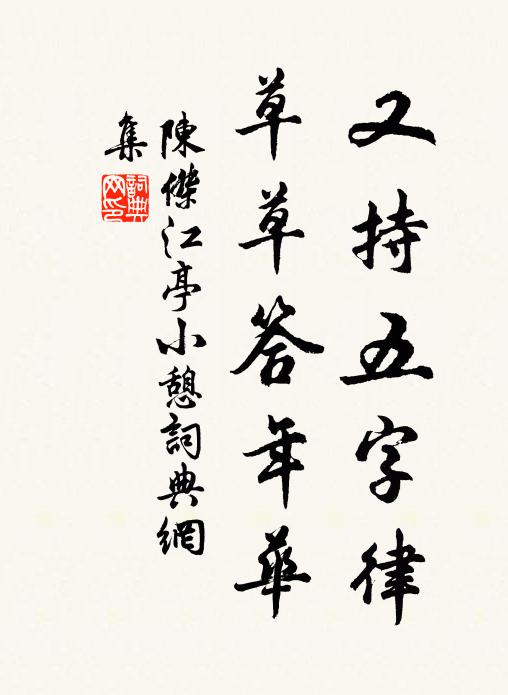 又持五字律
草草答年華
陳傑江亭小憩詞典網
集
詞典
网印